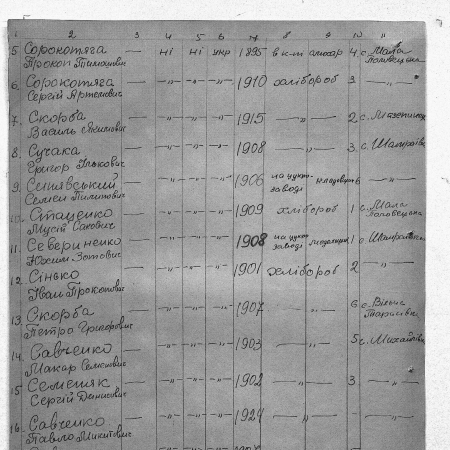 1 2 3 4 5 6 7 8 9 10 11
5 Сорокотяга — ні ні укр 1895 в к-ті слюсар 4 с. Мала
Прокоп Тимошович Половецька
6. Сорокотяга — " — " — " 1910 хлібороб 3 — " —
Сергій Артемович
7. Скорба — " — " — " 1915 — " — 2
Василь Якимович
8 Сучака — " — " — " 1908 — " — 3 с. Шамраївка
Григор
9. Синявський — " — " — " 1906 на цукр. 6 — " —
Семен Пилипович заводі
10. Стаценко — " — " — " 1909 хлібороб 1 с. Мала
Мусій Савович Половецька
11 Севериненко — " — " — " 1908 на цукр. 1 с Шамраївка
Юхим Зотович заводі
12 Сінько — " — " — " 1901 хлібороб 2 — " —
Іван Прокопович
13. Скорба — " — " — " 1907 — " — 6 с. Вільна
Петро Григорович Тарасівка
14. Савченко — " — " — " 1903 — " — 5 с. Михайлівка
Макар Семенович
15 Семеняк — " — " — " 1902 — " — 3 — " —
Сергій Денисович
16. Савченко — " — " — " 1924 — " — - — " —
Павло Микитович